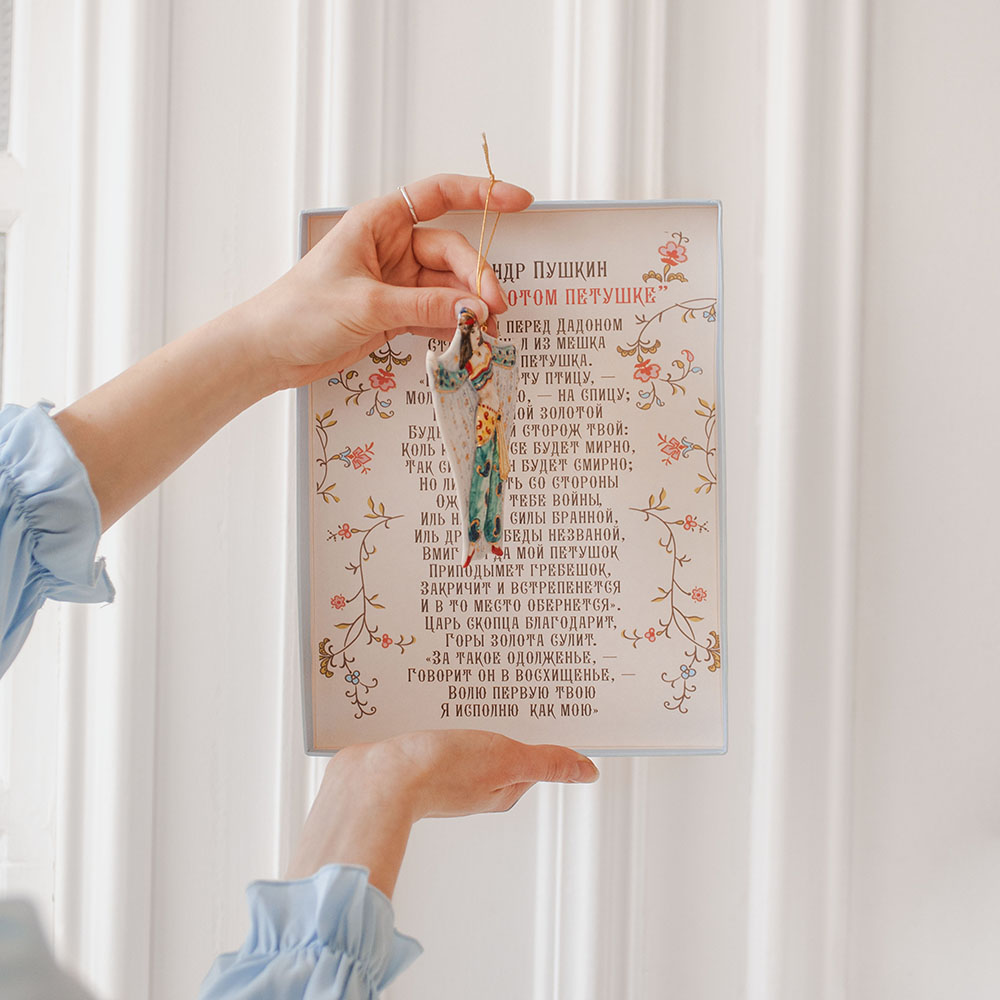 НДР ПУШКИН
ОТОМ ПЕТУШКЕ"
ПЕРЕД ДАДОНОМ
СТ Л ИЗ МЕШКА
ПЕТУШКА.
ТУ ПТИЦУ, —
МОЛ О, — НА СПИЦУ;
ОЙ ЗОЛОТОЙ
БУДЕ СТОРОЖ ТВОЙ:
КОЛЬ СЕ БУДЕТ МИРНО,
ТАК СИ Н БУДЕТ СМИРНО;
НО ЛИ ТЬ СО СТОРОНЫ
ОЖ ТЕБЕ ВОЙНЫ,
ИЛЬ Н СИЛЫ БРАННОЙ,
ИЛЬ ДР БЕДЫ НЕЗВАНОЙ,
ВМИГ ДА МОЙ ПЕТУШОК
ПРИПОДЫМЕТ ГРЕБЕШОК,
ЗАКРИЧИТ И ВСТРЕПЕНЕТСЯ
И В ТО МЕСТО ОБЕРНЕТСЯ».
ЦАРЬ СКОПЦА БЛАГОДАРИТ,
ГОРЫ ЗОЛОТА СУЛИТ.
«ЗА ТАКОЕ ОДОЛЖЕНЬЕ, —
ГОВОРИТ ОН В ВОСХИЩЕНЬЕ, —
ВОЛЮ ПЕРВУЮ ТВОЮ
Я ИСПОЛНЮ КАК МОЮ»